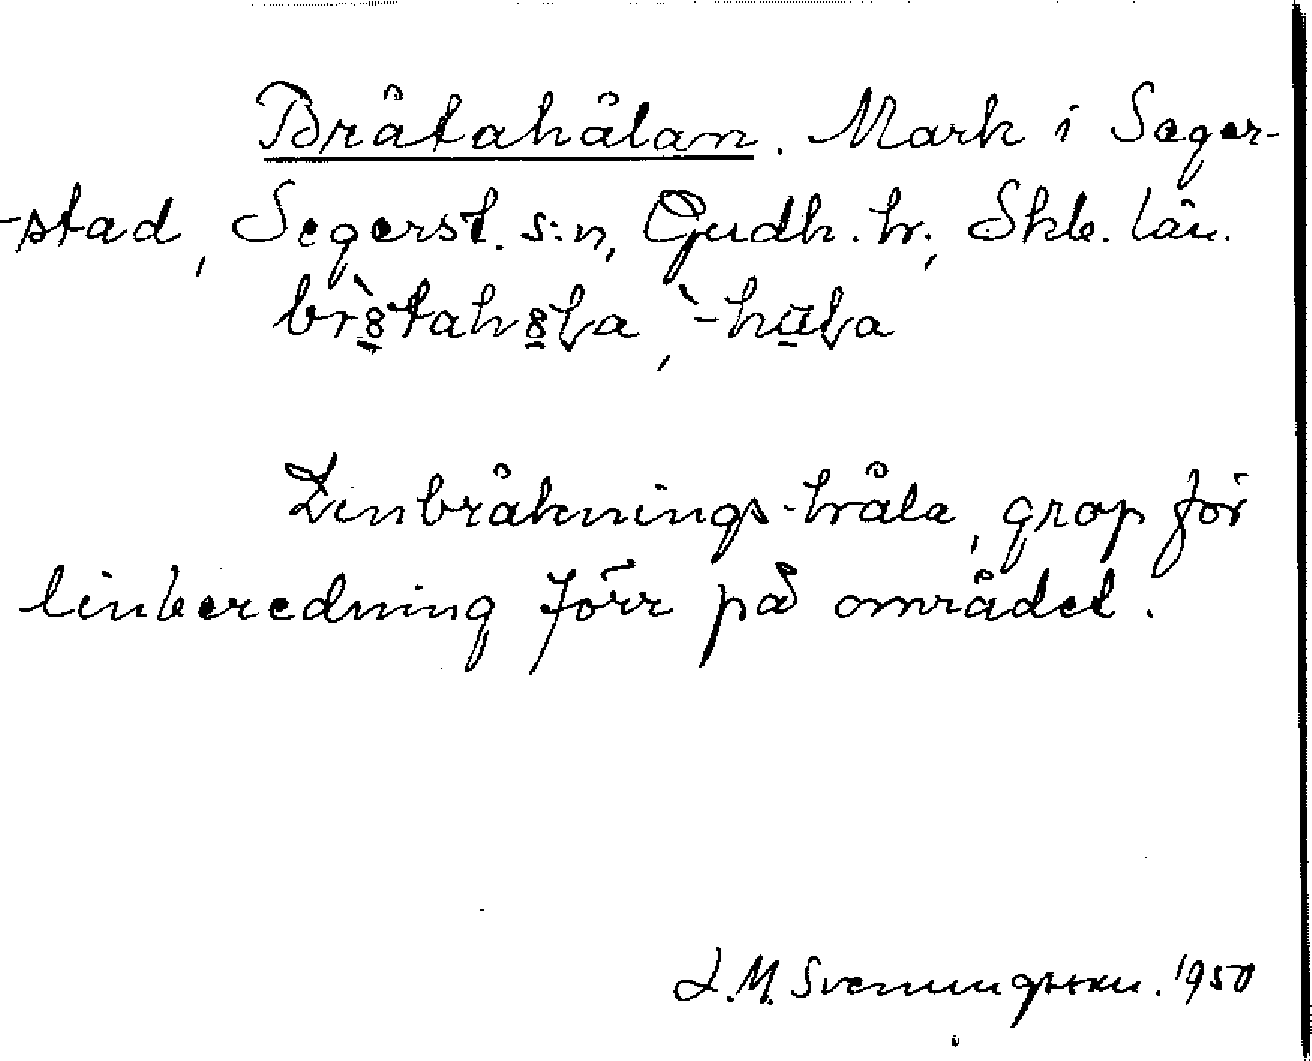 Bråtahålan. Mark i Seger-
-stad, Segerst. s:n, Gudh. hr., Skb. län.
br8̲̀tah8̲ɭa, `-hu̲ɭa
Linbråknings-håla, grop för
linberedning förr på området.
L.M. Svenungsson. 1950